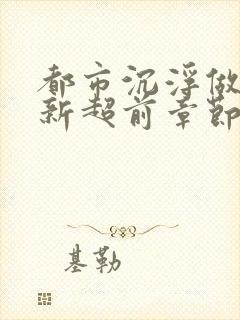 都市沉浮做
新超前章節
基勒